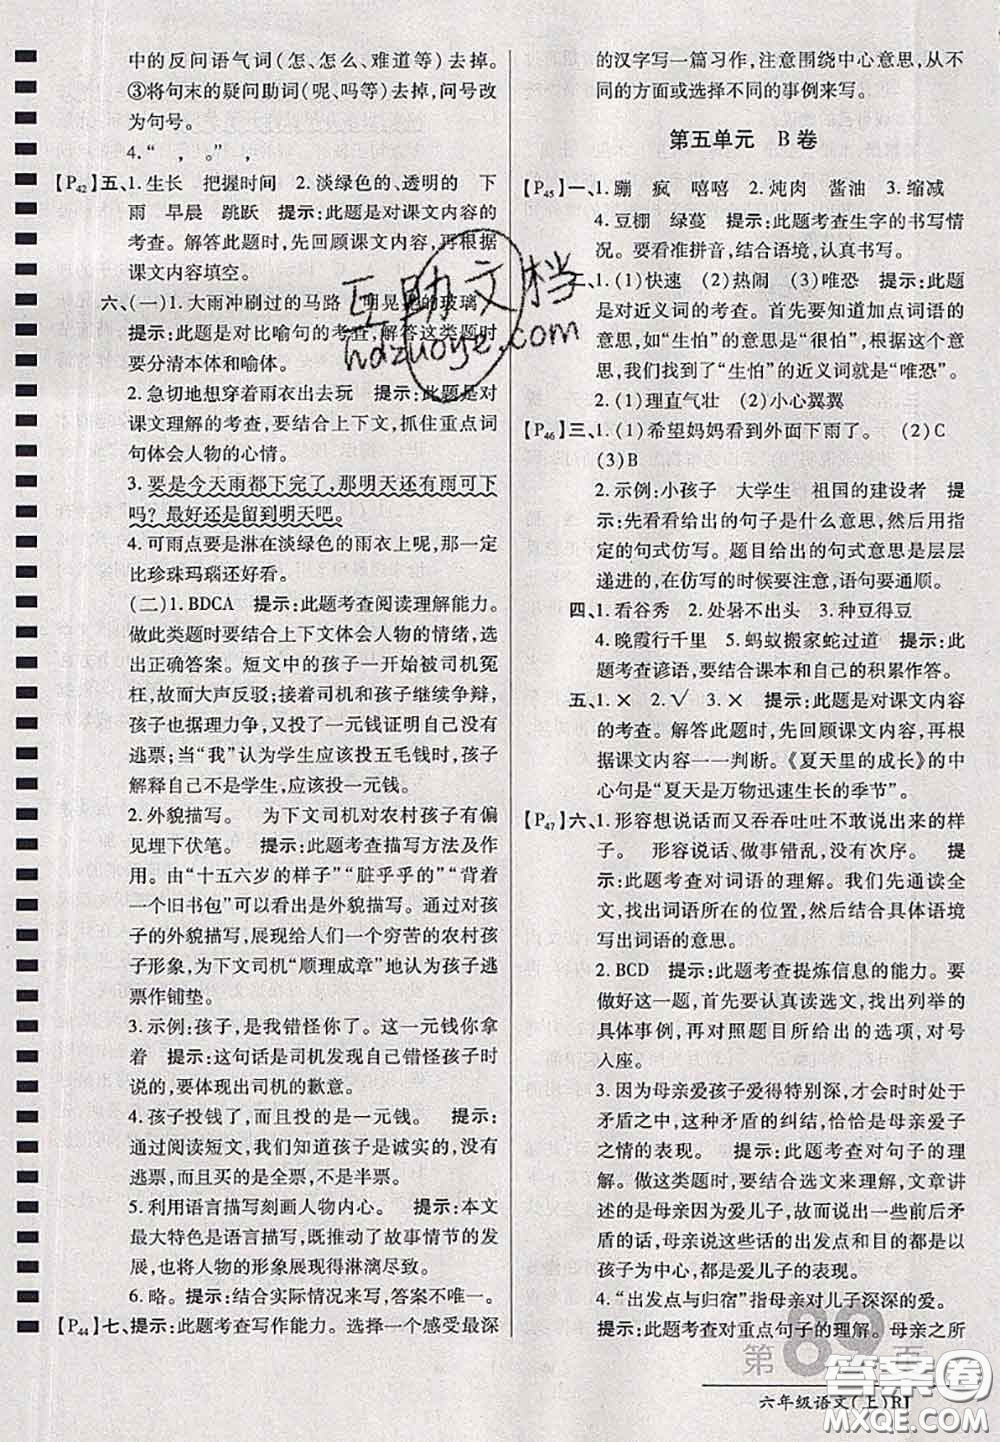 中的反问语气词(怎、怎么、难道等)去掉。
③将句末的疑问助词(呢、吗等)去掉,问号改
为句号。
4.“ , 。” ,
【P42】五、1.生长 把握时间 2.淡绿色的、透明的 下
雨 早晨 跳跃 提示:此题是对课文内容的
考查。解答此题时,先回顾课文内容,再根据
课文内容填空。
六、(一)1.大雨冲刷过的马路 明晃晃的玻璃
提示:此题是对比喻句的考查,解答这类题时
要分清本体和喻体。
2.急切地想穿着雨衣出去玩 提示:此题是对
课文理解的考查,要结合上下文,抓住重点词
句体会人物的心情。
3.要是今天雨都下完了,那明天还有雨可下
吗?最好还是留到明天吧。
4.可雨点要是淋在淡绿色的雨衣上呢,那一定
比珍珠玛瑙还好看。
(二)1.BDCA 提示:此题考查阅读理解能力。
做此类题时要结合上下文体会人物的情绪,选
出正确答案。短文中的孩子一开始被司机冤
枉,故而大声反驳;接着司机和孩子继续争辩,
孩子也据理力争,又投了一元钱证明自己没有
逃票;当“我”认为学生应该投五毛钱时,孩子
解释自己已经不是学生,应该投一元钱。
2.外貌描写。 为下文司机对农村孩子有偏
见埋下伏笔。 提示:此题考查描写方法及作
用。由“十五六岁的样子”“脏乎乎的”“背着
一个旧书包”可以看出是外貌描写。通过对孩
子的外貌描写,展现给人们一个穷苦的农村孩
子形象,为下文司机“顺理成章”地认为孩子逃
票作铺垫。
3.示例:孩子,是我错怪你了。这一元钱你拿
着 提示:这句话是司机发现自己错怪孩子时
说的,要体现出司机的歉意。
4.孩子投钱了,而且投的是一元钱。 提示:
通过阅读短文,我们知道孩子是诚实的,没有
逃票,而且买的是全票,不是半票。
5.利用语言描写刻画人物内心。 提示:本文
最大特色是语言描写,既推动了故事情节的发
展,也将人物的形象展现得淋漓尽致。
6.略。提示:结合实际情况来写,答案不唯一。
【P44】七、提示:此题考查写作能力。选择一个感受最深
的汉字写一篇习作,注意围绕中心意思,从不
同的方面或选择不同的事例来写。
第五单元 B卷
【P45】一、1.蹦 疯 嘻嘻 2.炖肉 酱油 3.缩减
4.豆棚 绿蔓 提示:此题考查生字的书写情
况。要看准拼音,结合语境,认真书写。
二、1.(1)快速 (2)热闹 (3)唯恐 提示:此题
是对近义词的考查。首先要知道加点词语的
意思,如“生怕”的意思是“很怕”,根据这个意
思,我们找到了“生怕”的近义词就是“唯恐”。
2.(1)理直气壮 (2)小心翼翼
【P46】三、1.(1)希望妈妈看到外面下雨了。 (2)C
(3)B
2.示例:小孩子 大学生 祖国的建设者 提
示:先看看给出的句子是什么意思,然后用指
定的句式仿写。题目给出的句式意思是层层
递进的,在仿写的时候要注意,语句要通顺。
四、1.看谷秀 2.处暑不出头 3.种豆得豆
4.晚霞行千里 5.蚂蚁搬家蛇过道 提示:此
题考查谚语,要结合课本和自己的积累作答。
五、1.× 2.√ 3.× 提示:此题是对课文内容
的考查。解答此题时,先回顾课文内容,再根
据课文内容一一判断。《夏天里的成长》的中
心句是“夏天是万物迅速生长的季节”。
【P47】六、1.形容想说话而又吞吞吐吐不敢说出来的样
子。 形容说话、做事错乱,没有次序。 提
示:此题考查对词语的理解。我们先通读全
文,找出词语所在的位置,然后结合具体语境
写出词语的意思。
2.BCD 提示:此题考查提炼信息的能力。要
做好这一题,首先要认真读选文,找出列举的
具体事例,再对照题目所给出的选项,对号
入座。
3.因为母亲爱孩子爱得特别深,才会时时处于
矛盾之中,这种矛盾的纠结,恰恰是母亲爱子
之情的表现。 提示:此题考查对句子的理
解。做这类题目,要结合选文来理解,文章讲
述的故事都是因为爱儿子,说出一些前后矛
盾的话,而说这些话的出发点与目的,都是以
孩子为中心,都是爱儿子的表现。
4.“出发点与归宿”指母亲对儿子深深的爱。
提示:此题考查对重点句子的理解。母亲之所
第89页
六年级语文(上)RJ
互助文档
hdzuoye.com
答案圈
MXQE.COM